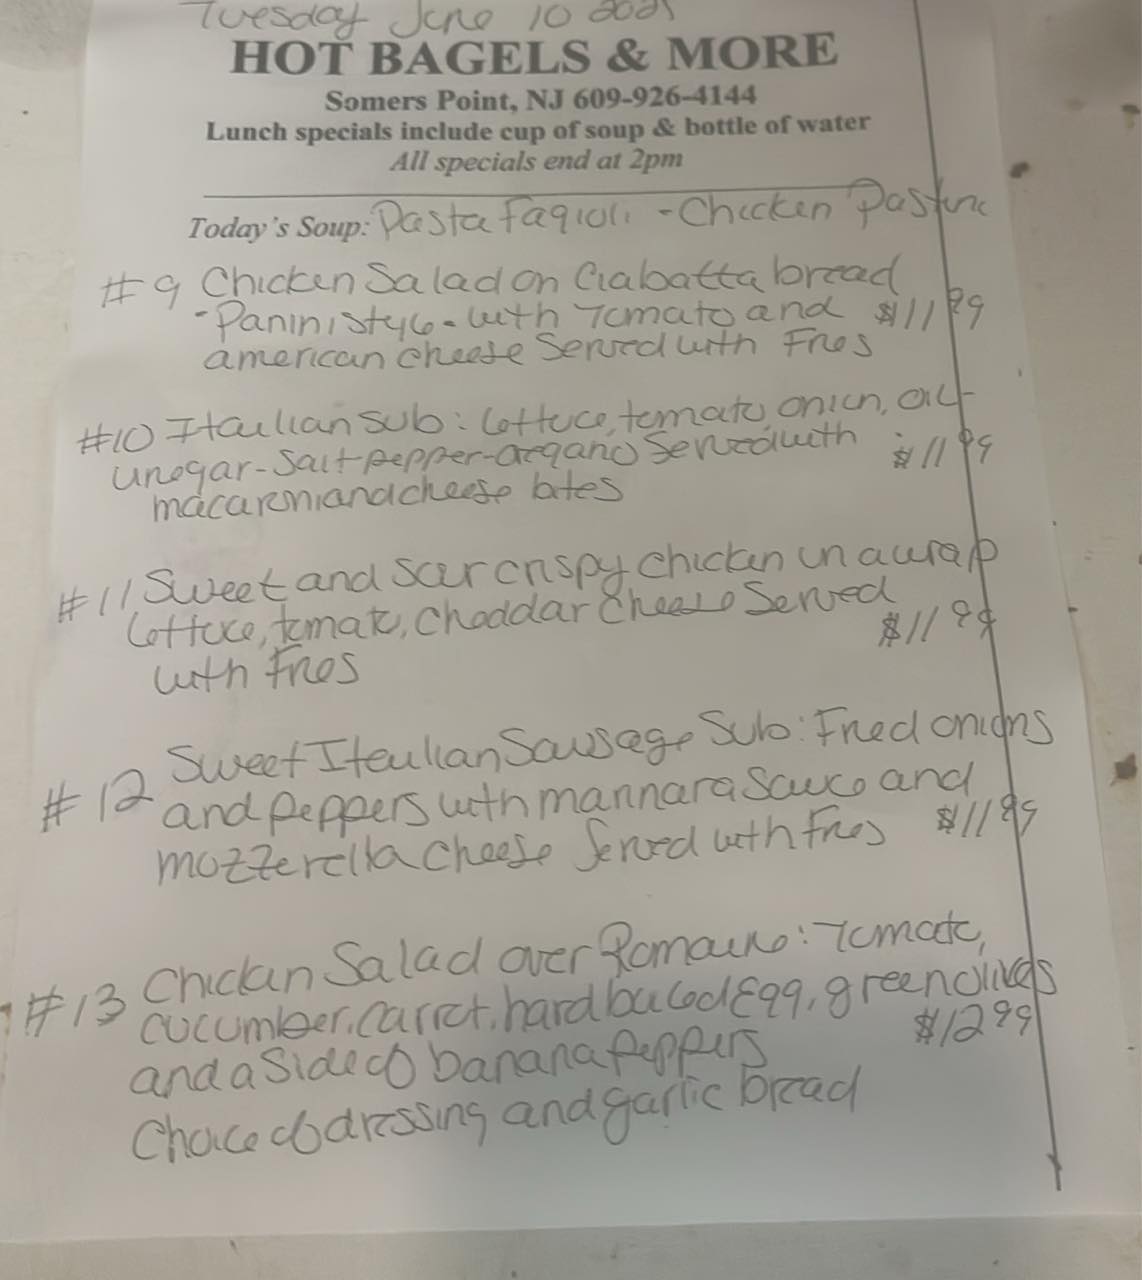 Tuesday June 10 2025
HOT BAGELS & MORE
Somers Point, NJ 609-926-4144
Lunch specials include cup of soup & bottle of water
All specials end at 2pm
Today's Soup: Pasta Fagioli - Chicken Pastina
#9 Chicken Salad on Ciabatta bread
-Panini style- with Tomato and $11 99
american cheese Served with Fries
#10 Itailian Sub: lettuce, tomato, onion, oil-
vinegar-Salt-pepper-oregano Served with $11 99
macaroni and cheese bites
#11 Sweet and Sour crispy chicken in a wrap
lettuce, tomato, cheddar cheese Served $11 99
with Fries
Sweet Itailian Sausage Sub: Fried onions
#12 and peppers with marinara Sauce and
mozzerella cheese Served with Fries $11 99
Chicken Salad over Romaine: Tomato,
#13 cucumber, carrot, hard boiled Egg, green olives
and a Side of banana peppers $12 99
Choice of dressing and garlic bread